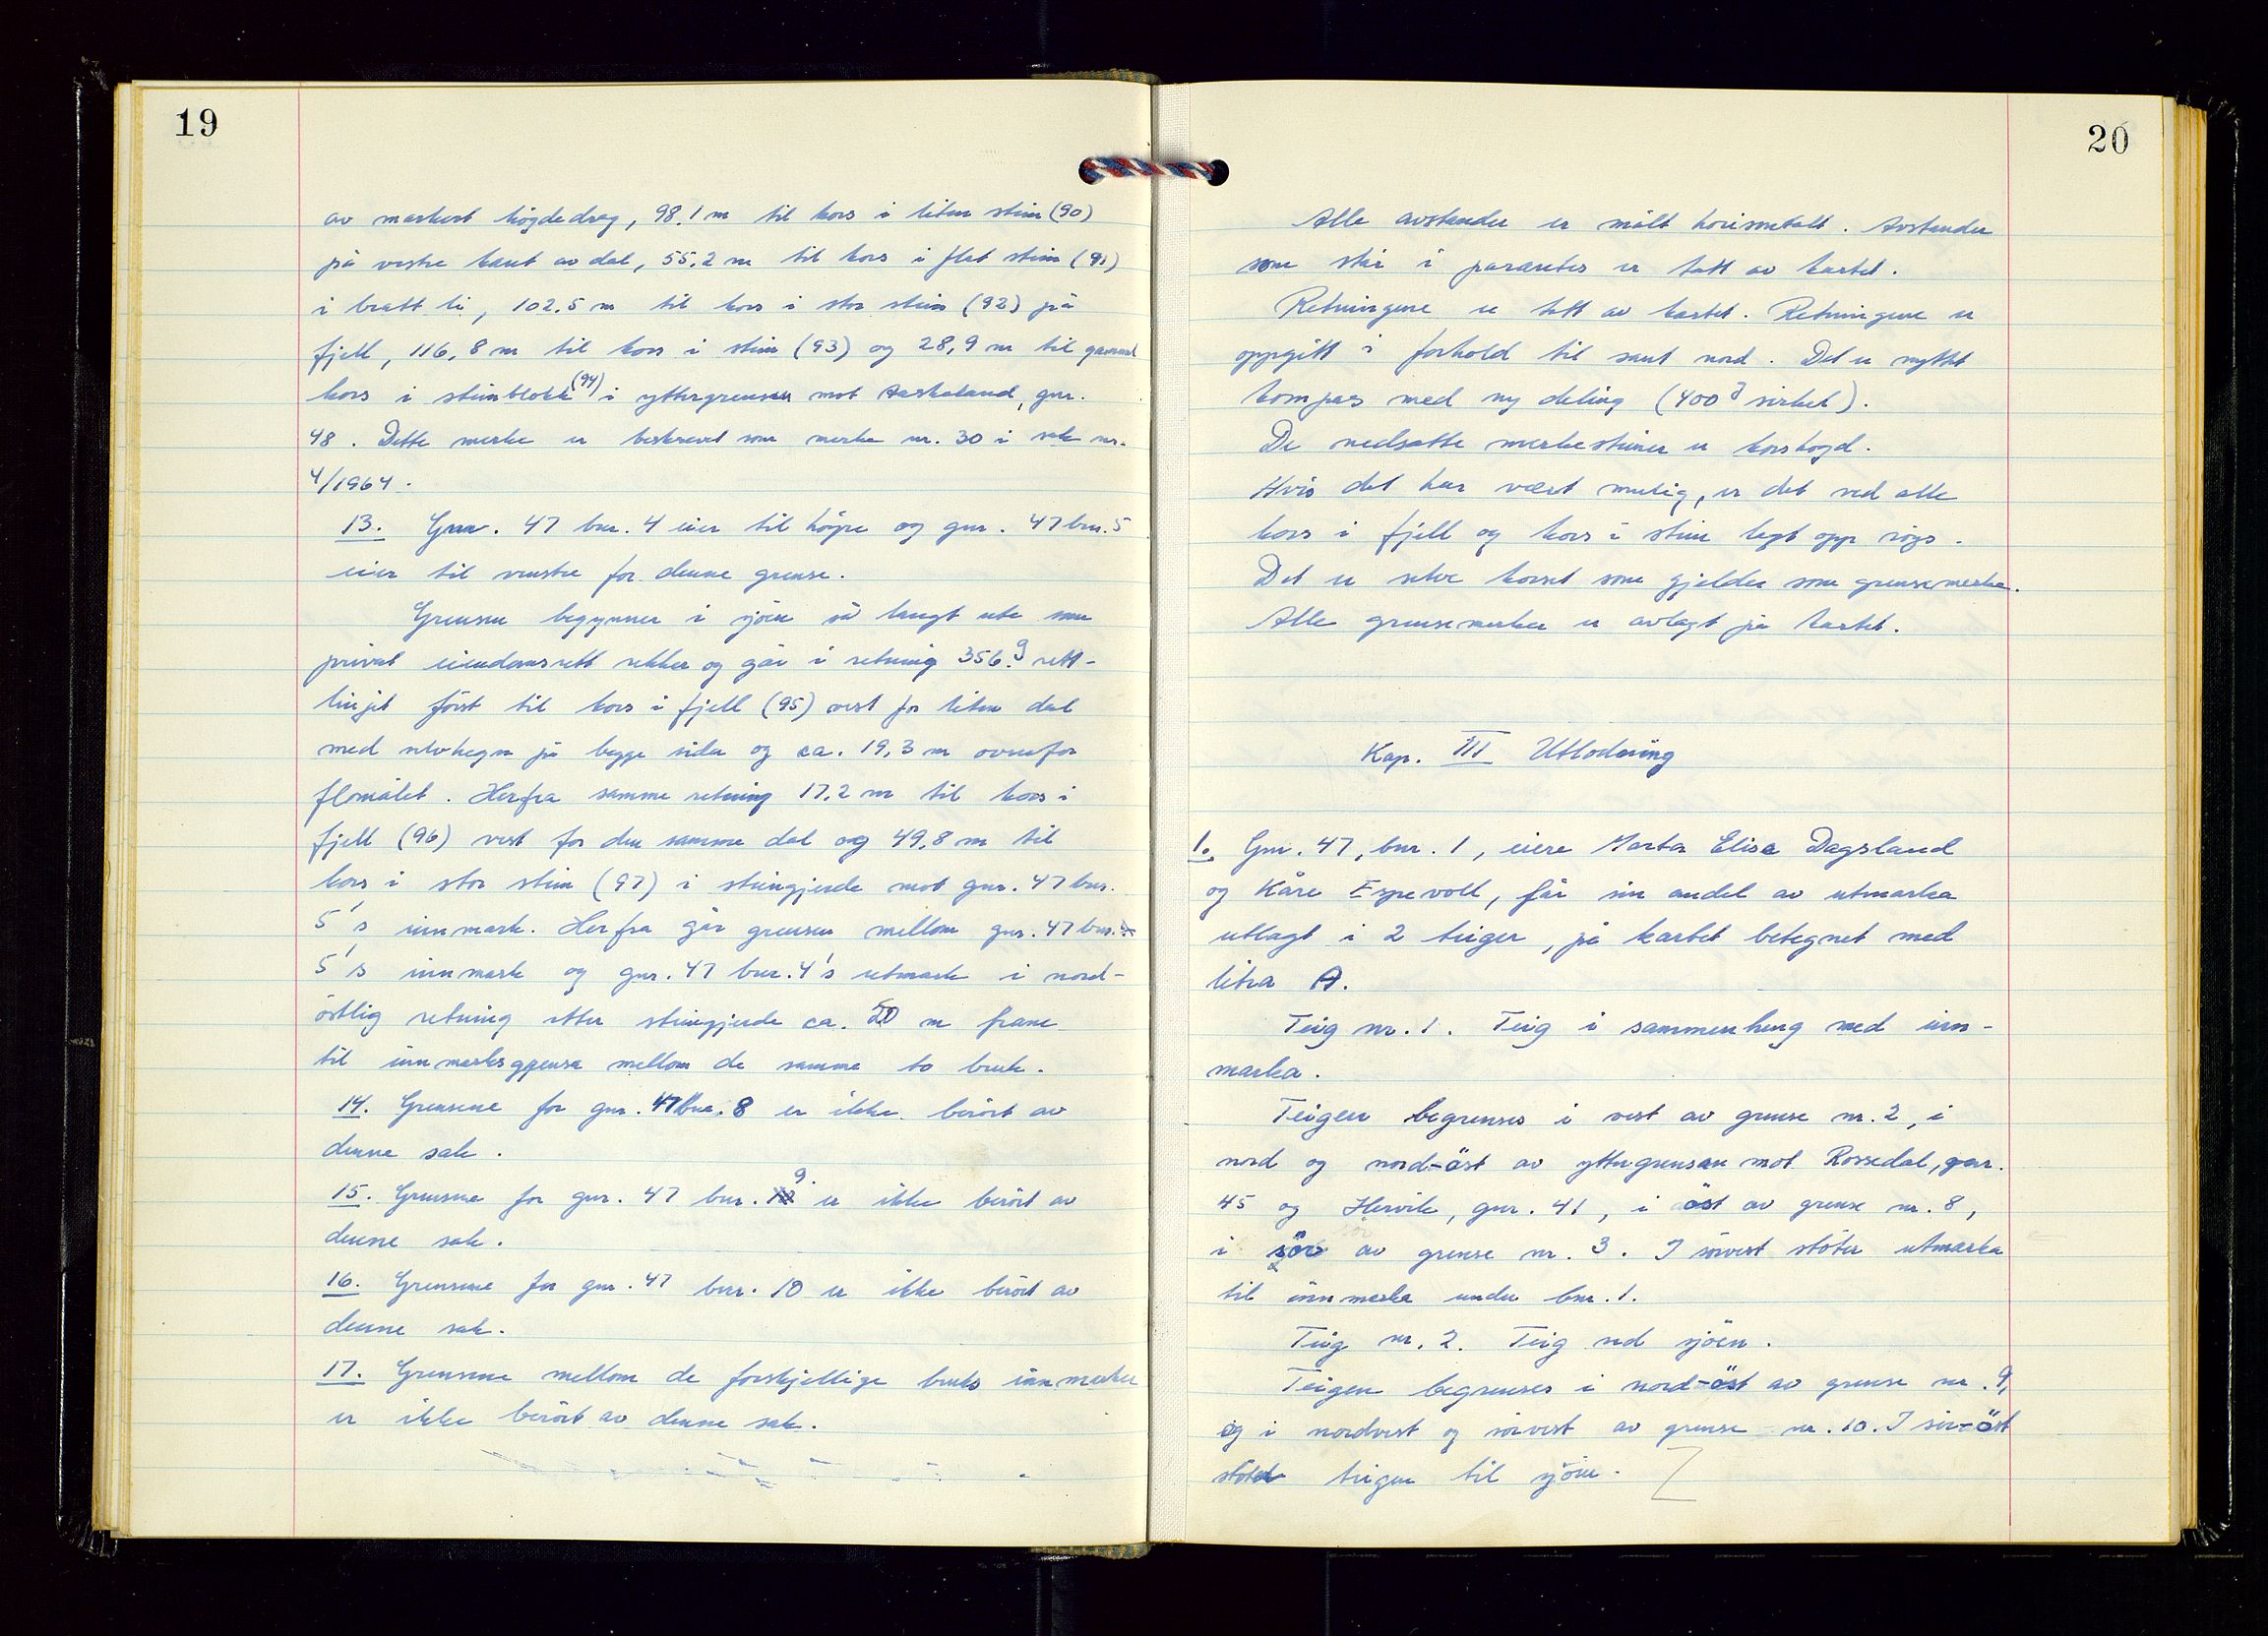 19
av markert högdedrag, 98.1 m til kors i liten stein (90)
på vestre kant av dal, 55,2 m til kors i flat stein (91)
i bratt li, 102.5 m til kors i stor stein (92) på
fjell, 116,8 m til kors i stein (93) og 28,9 m til gammel
kors i steinblokk (94) i yttergrensen mot Aaskeland, gnr.
48. Dette merke er beskrevet som merke nr. 30 i sak nr.
4/1964.
13. Gnr. 47 bnr. 4 eier til höyre og gnr. 47 bnr. 5
eier til venstre for denne grense.
Grensen begynner i sjöen så langt ute som
privat eiendomsrett rekker og går i retning 356.g rett-
linjet först til kors i fjell (95) vest for liten dal
med selvhegn på begge sider og ca. 19,3 m ovenfor
flomålet. Herfra samme retning 17,2 m til kors i
fjell (96) vest for den samme dal og 49,8 m til
kors i stor stein (97) i steingjerde mot gnr. 47 bnr.
5's innmark. Herfra går grensen mellom gnr. 47 bnr.
5's innmark og gnr. 47 bnr. 4's utmark i nord-
östlig retning etter steingjerde ca. 50 m fram
til innmarksgrense mellom de samme to bruk.
14. Grensene for gnr. 47 bnr. 8 er ikke berört av
denne sak.
15. Grensene for gnr. 47 bnr. 9 er ikke berört av
denne sak.
16. Grensene for gnr. 47 bnr. 10 er ikke berört av
denne sak.
17. Grensene mellom de forskjellige bruks innmarker
er ikke berört av denne sak.
20
Alle avstander er målt horisontalt. Avstander
som står i parantes er tatt av kartet.
Retningene er tatt av kartet. Retningene er
oppgitt i forhold til sant nord. Det er nyttet
kompas med ny deling (400g sirkel).
De nedsatte merkesteiner er korshogd.
Hvis det har vært mulig, er det ved alle
kors i fjell og kors i stein lagt opp röys.
Det er selve korset som gjelder som grensemerke.
Alle grensemerker er avlagt på kartet.
Kap. III Utlodning
1. Gnr. 47, bnr. 1, eiere Marta Elise Dagsland
og Kåre Espevoll, får sin andel av utmarka
utlagt i 2 teiger, på kartet betegnet med
litra A.
Teig nr. 1. Teig i sammenheng med inn-
marka.
Teigen begrenses i vest av grense nr. 2, i
nord og nord-öst av yttergrensen mot Rossedal, gnr.
45 og Hervik, gnr. 41, i öst av grense nr. 8,
i sör av grense nr. 3. I sörvest stöter utmarka
til innmarka under bnr. 1.
Teig nr. 2. Teig ved sjöen.
Teigen begrenses i nord-öst av grense nr. 9,
og i nordvest og sörvest av grense nr. 10. I sör-öst
stöter teigen til sjöen.